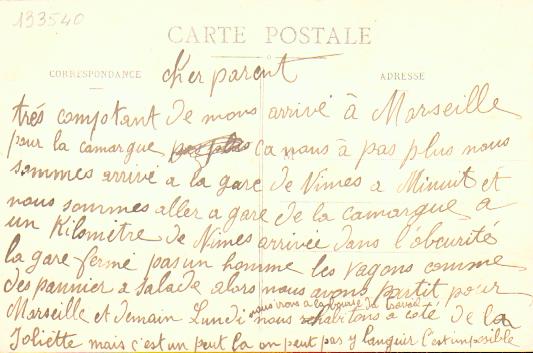 133540
CARTE POSTALE
CORRESPONDANCE
ADRESSE
cher parent
très comptant de nous arrivé à Marseille
pour la camargue ça nous à pas plus nous
sommes arrivé a la gare de Nimes a Minuit et
nous sommes aller a gare de la camargue a
un Kilomètre de Nimes arrivée dans l'obcurité
la gare fermé pas un homme les vagons comme
des pannier a salade alors nous avons partit pour
nous irons a la bourse du travail
Marseille et demain Lundi nous habitons à coté de la
Joliette mais c'est un peut la on peut pas y languir c'est impossible